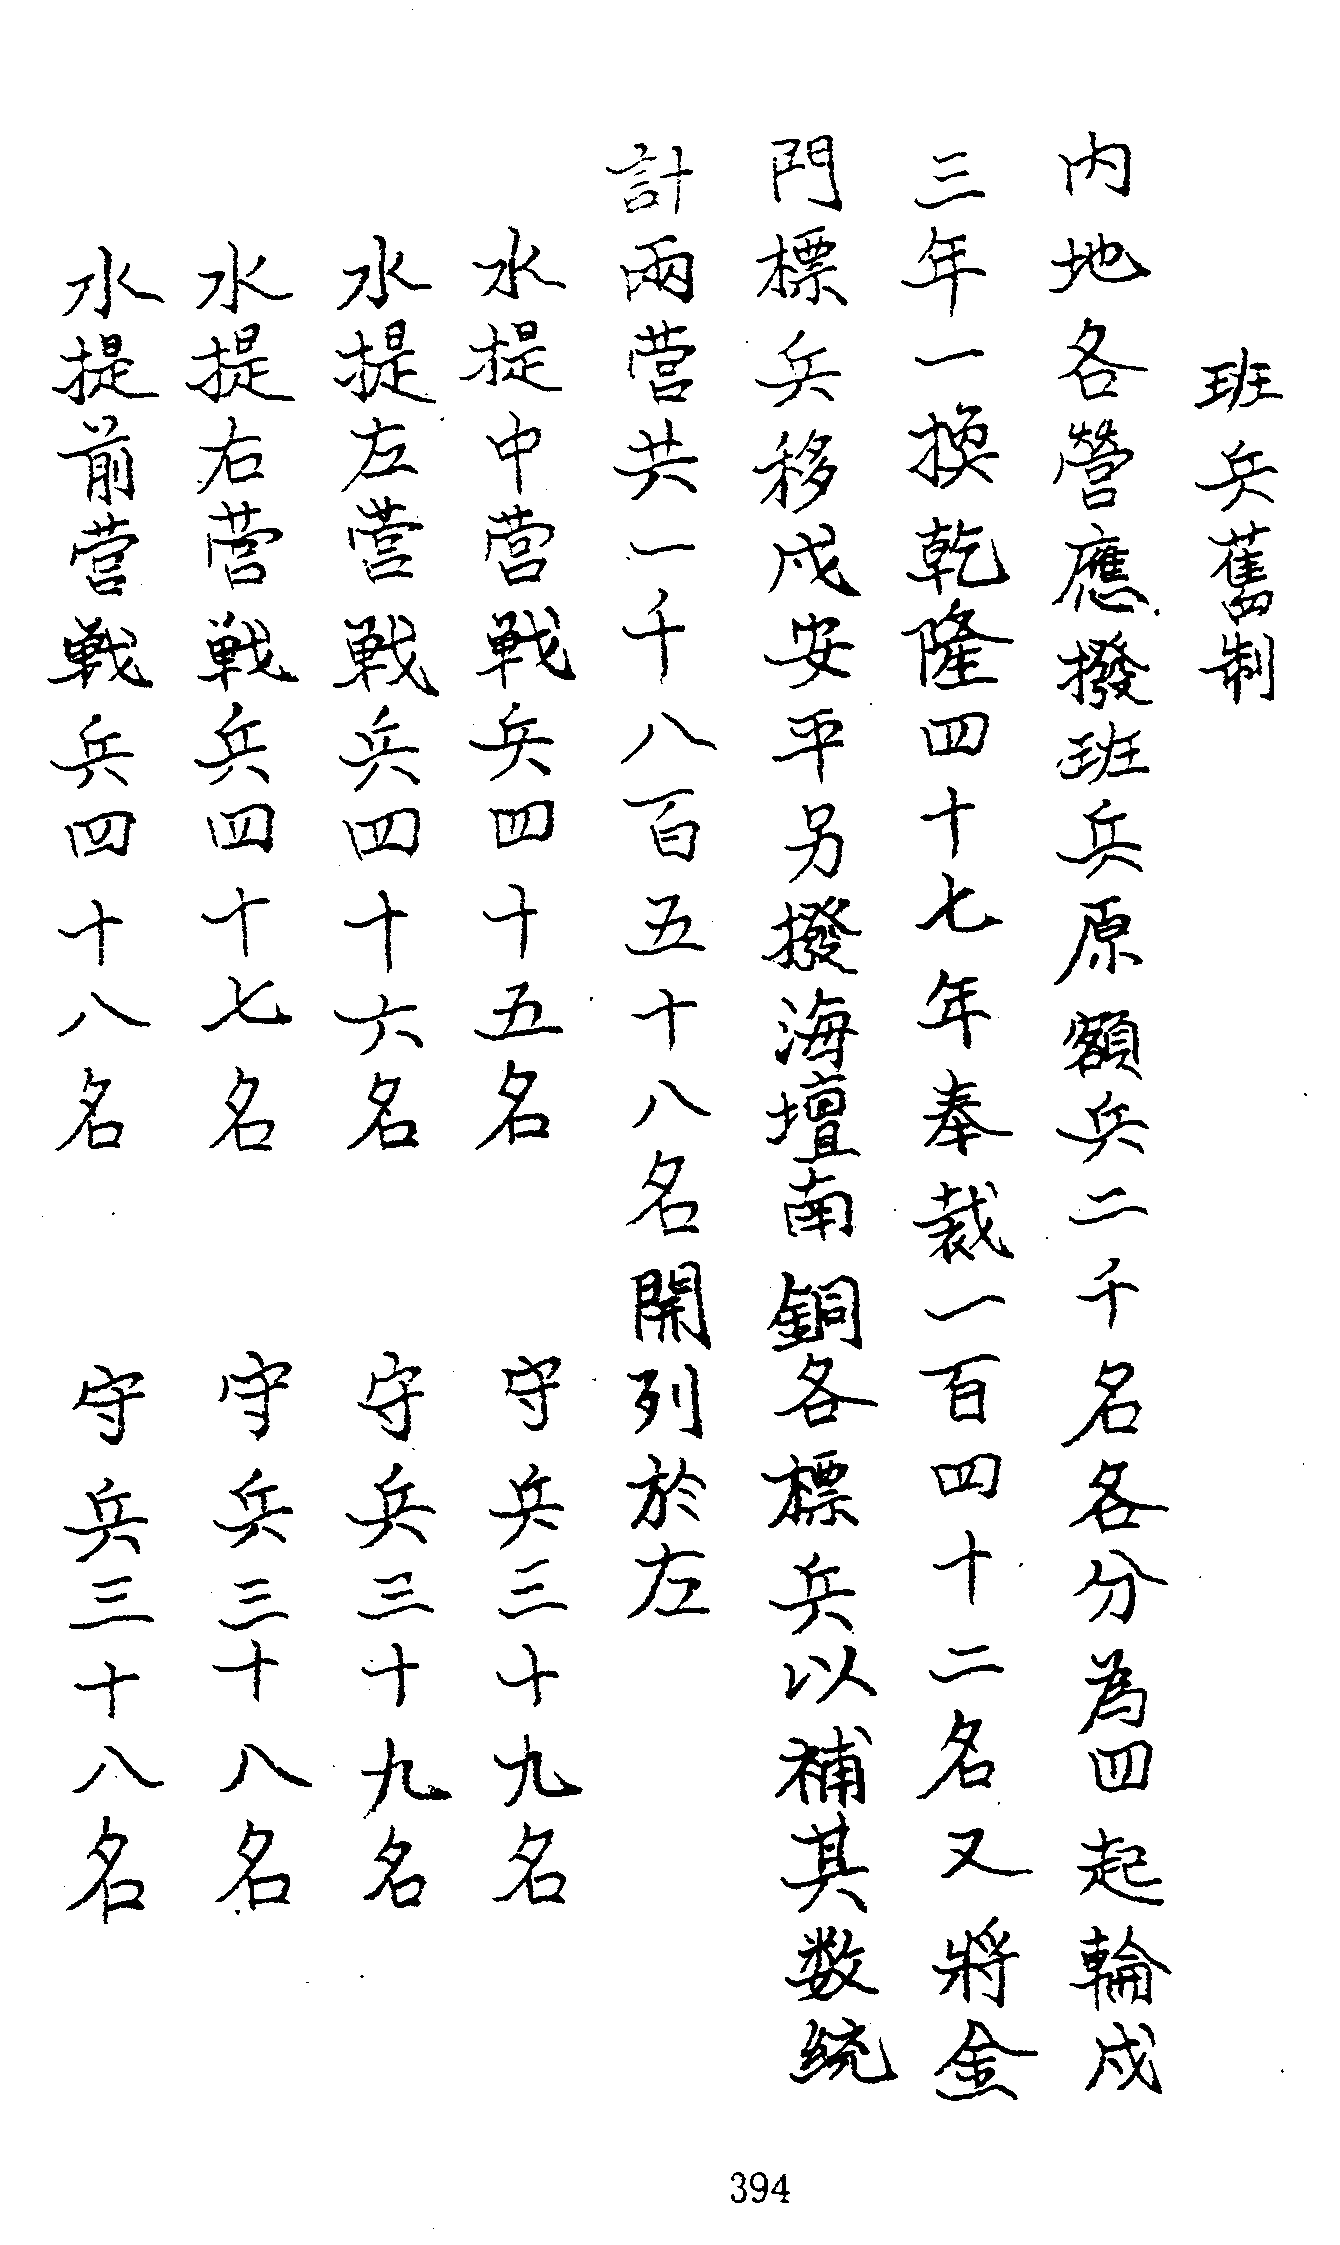 班兵舊制
内地各營應撥班兵原額兵二千名各分為四起輪戍
三年一換乾隆四十七年奉裁一百四十二名又將金
門標兵移戍安平另撥海壇南銅各標兵以補其数統
計兩营共一千八百五十八名開列於左
水提中营戰兵四十五名 守兵三十九名
水提左营戰兵四十六名 守兵三十九名
水提右营戰兵四十七名 守兵三十八名
水提前营戰兵四十八名 守兵三十八名
394